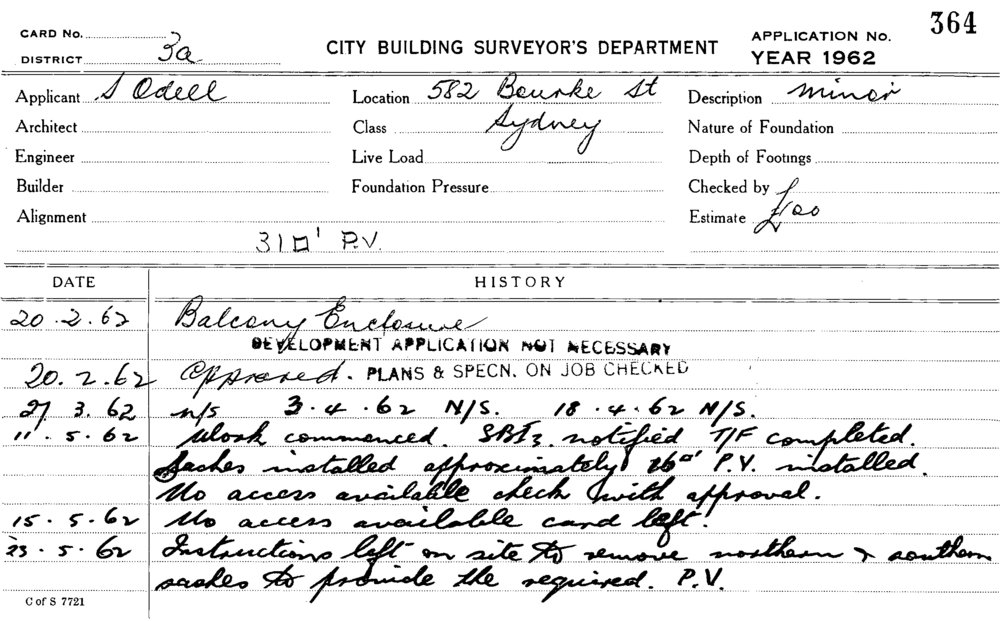 364
CARD No.
APPLICATION No.
CITY BUILDING SURVEYOR'S DEPARTMENT
DISTRICT 3a
YEAR 1962
Applicant S Odell
Location 582 Bourke St
Description minor
Architect
Class Sydney
Nature of Foundation
Engineer
Live Load
Depth of Footings
Builder
Foundation Pressure
Checked by
Alignment
Estimate £100
31□' P.V.
DATE HISTORY
20.2.62 Balcony Enclosure
DEVELOPMENT APPLICATION NOT NECESSARY
20.2.62 Approved. PLANS & SPECN. ON JOB CHECKED
27 3. 62 n/s 3.4.62 N/S. 18.4.62 N/S.
11.5.62 Work commenced. notified T/F completed.
Sashes installed approximately 26□' P.V. installed.
No access available check with approval.
15.5.62 No access available card left.
23.5.62 Instructions left on site to remove northern & southern
sashes to provide the required. P.V.
C of S 7721